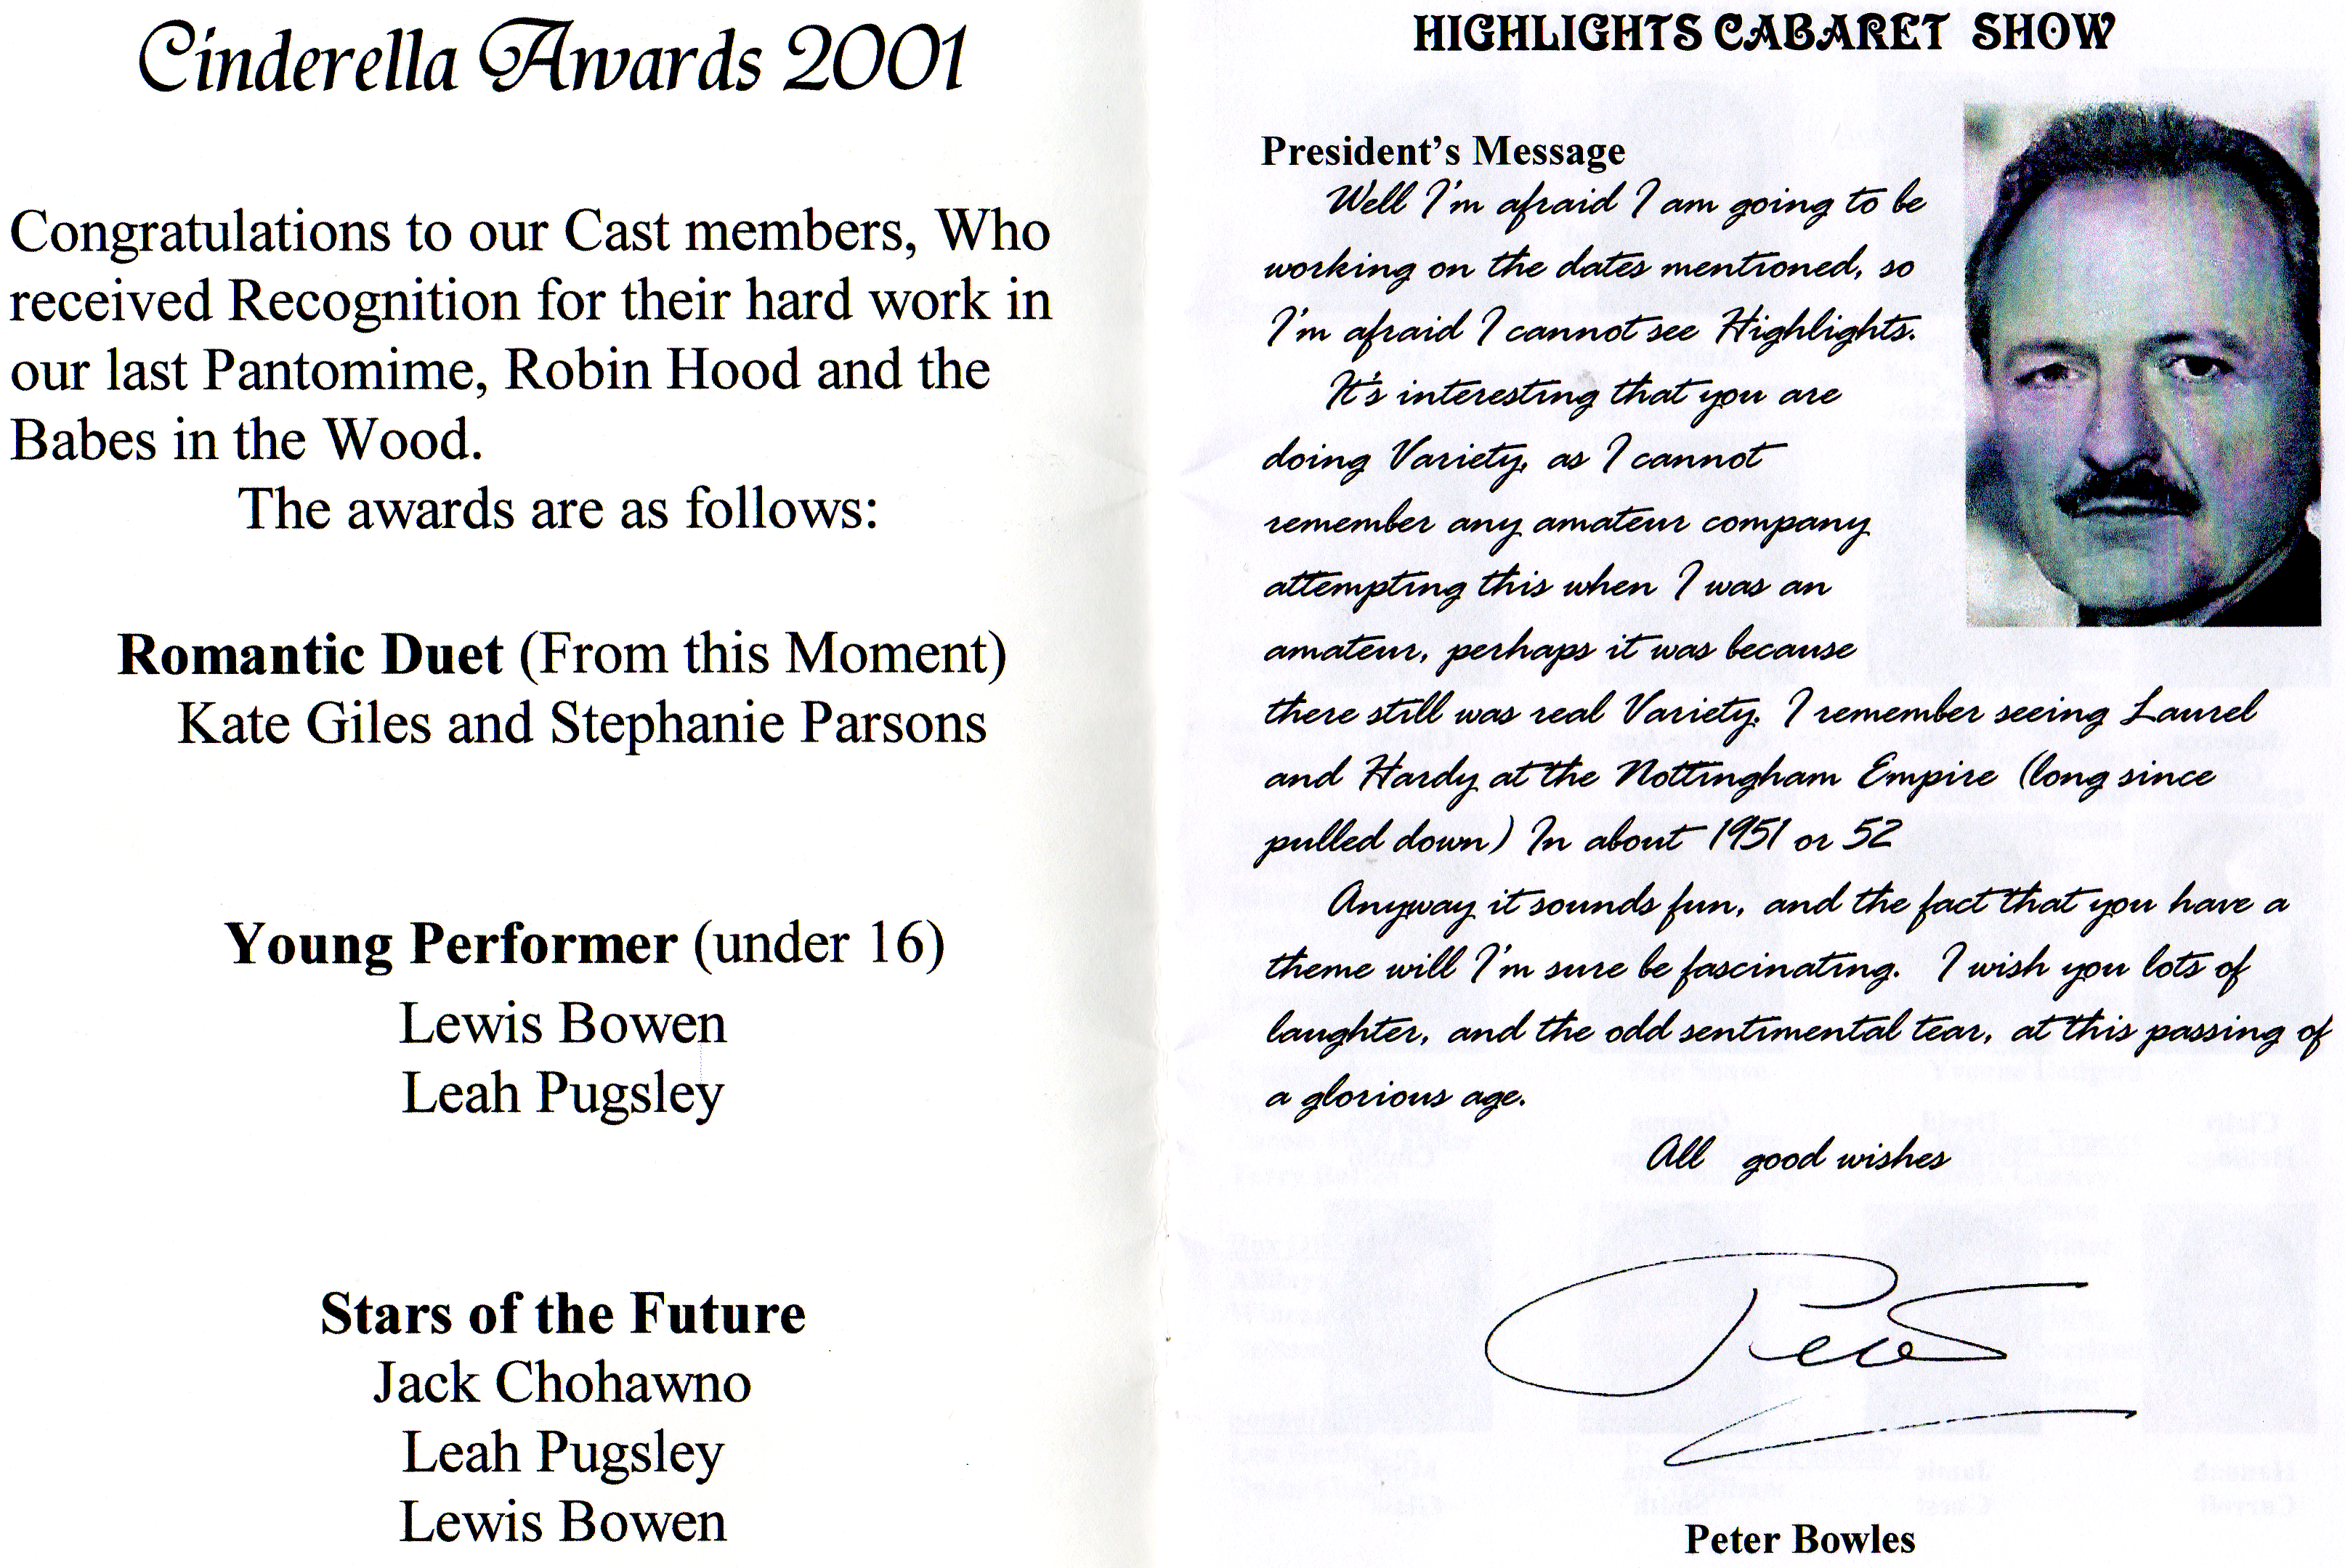 Cinderella Awards 2001
Congratulations to our Cast members, Who
received Recognition for their hard work in
our last Pantomime, Robin Hood and the
Babes in the Wood.
The awards are as follows:
Romantic Duet (From this Moment)
Kate Giles and Stephanie Parsons
Young Performer (under 16)
Lewis Bowen
Leah Pugsley
Stars of the Future
Jack Chohawno
Leah Pugsley
Lewis Bowen
HIGHLIGHTS CABARET SHOW
President's Message
Well I'm afraid I am going to be
working on the dates mentioned, so
I'm afraid I cannot see Highlights.
It's interesting that you are
doing Variety, as I cannot
remember any amateur company
attempting this when I was an
amateur, perhaps it was because
there still was real Variety. I remember seeing Laurel
and Hardy at the Nottingham Empire (long since
pulled down) In about 1951 or 52
Anyway it sounds fun, and the fact that you have a
theme will I'm sure be fascinating. I wish you lots of
laughter, and the odd sentimental tear, at this passing of
a glorious age.
All good wishes
Peter Bowles